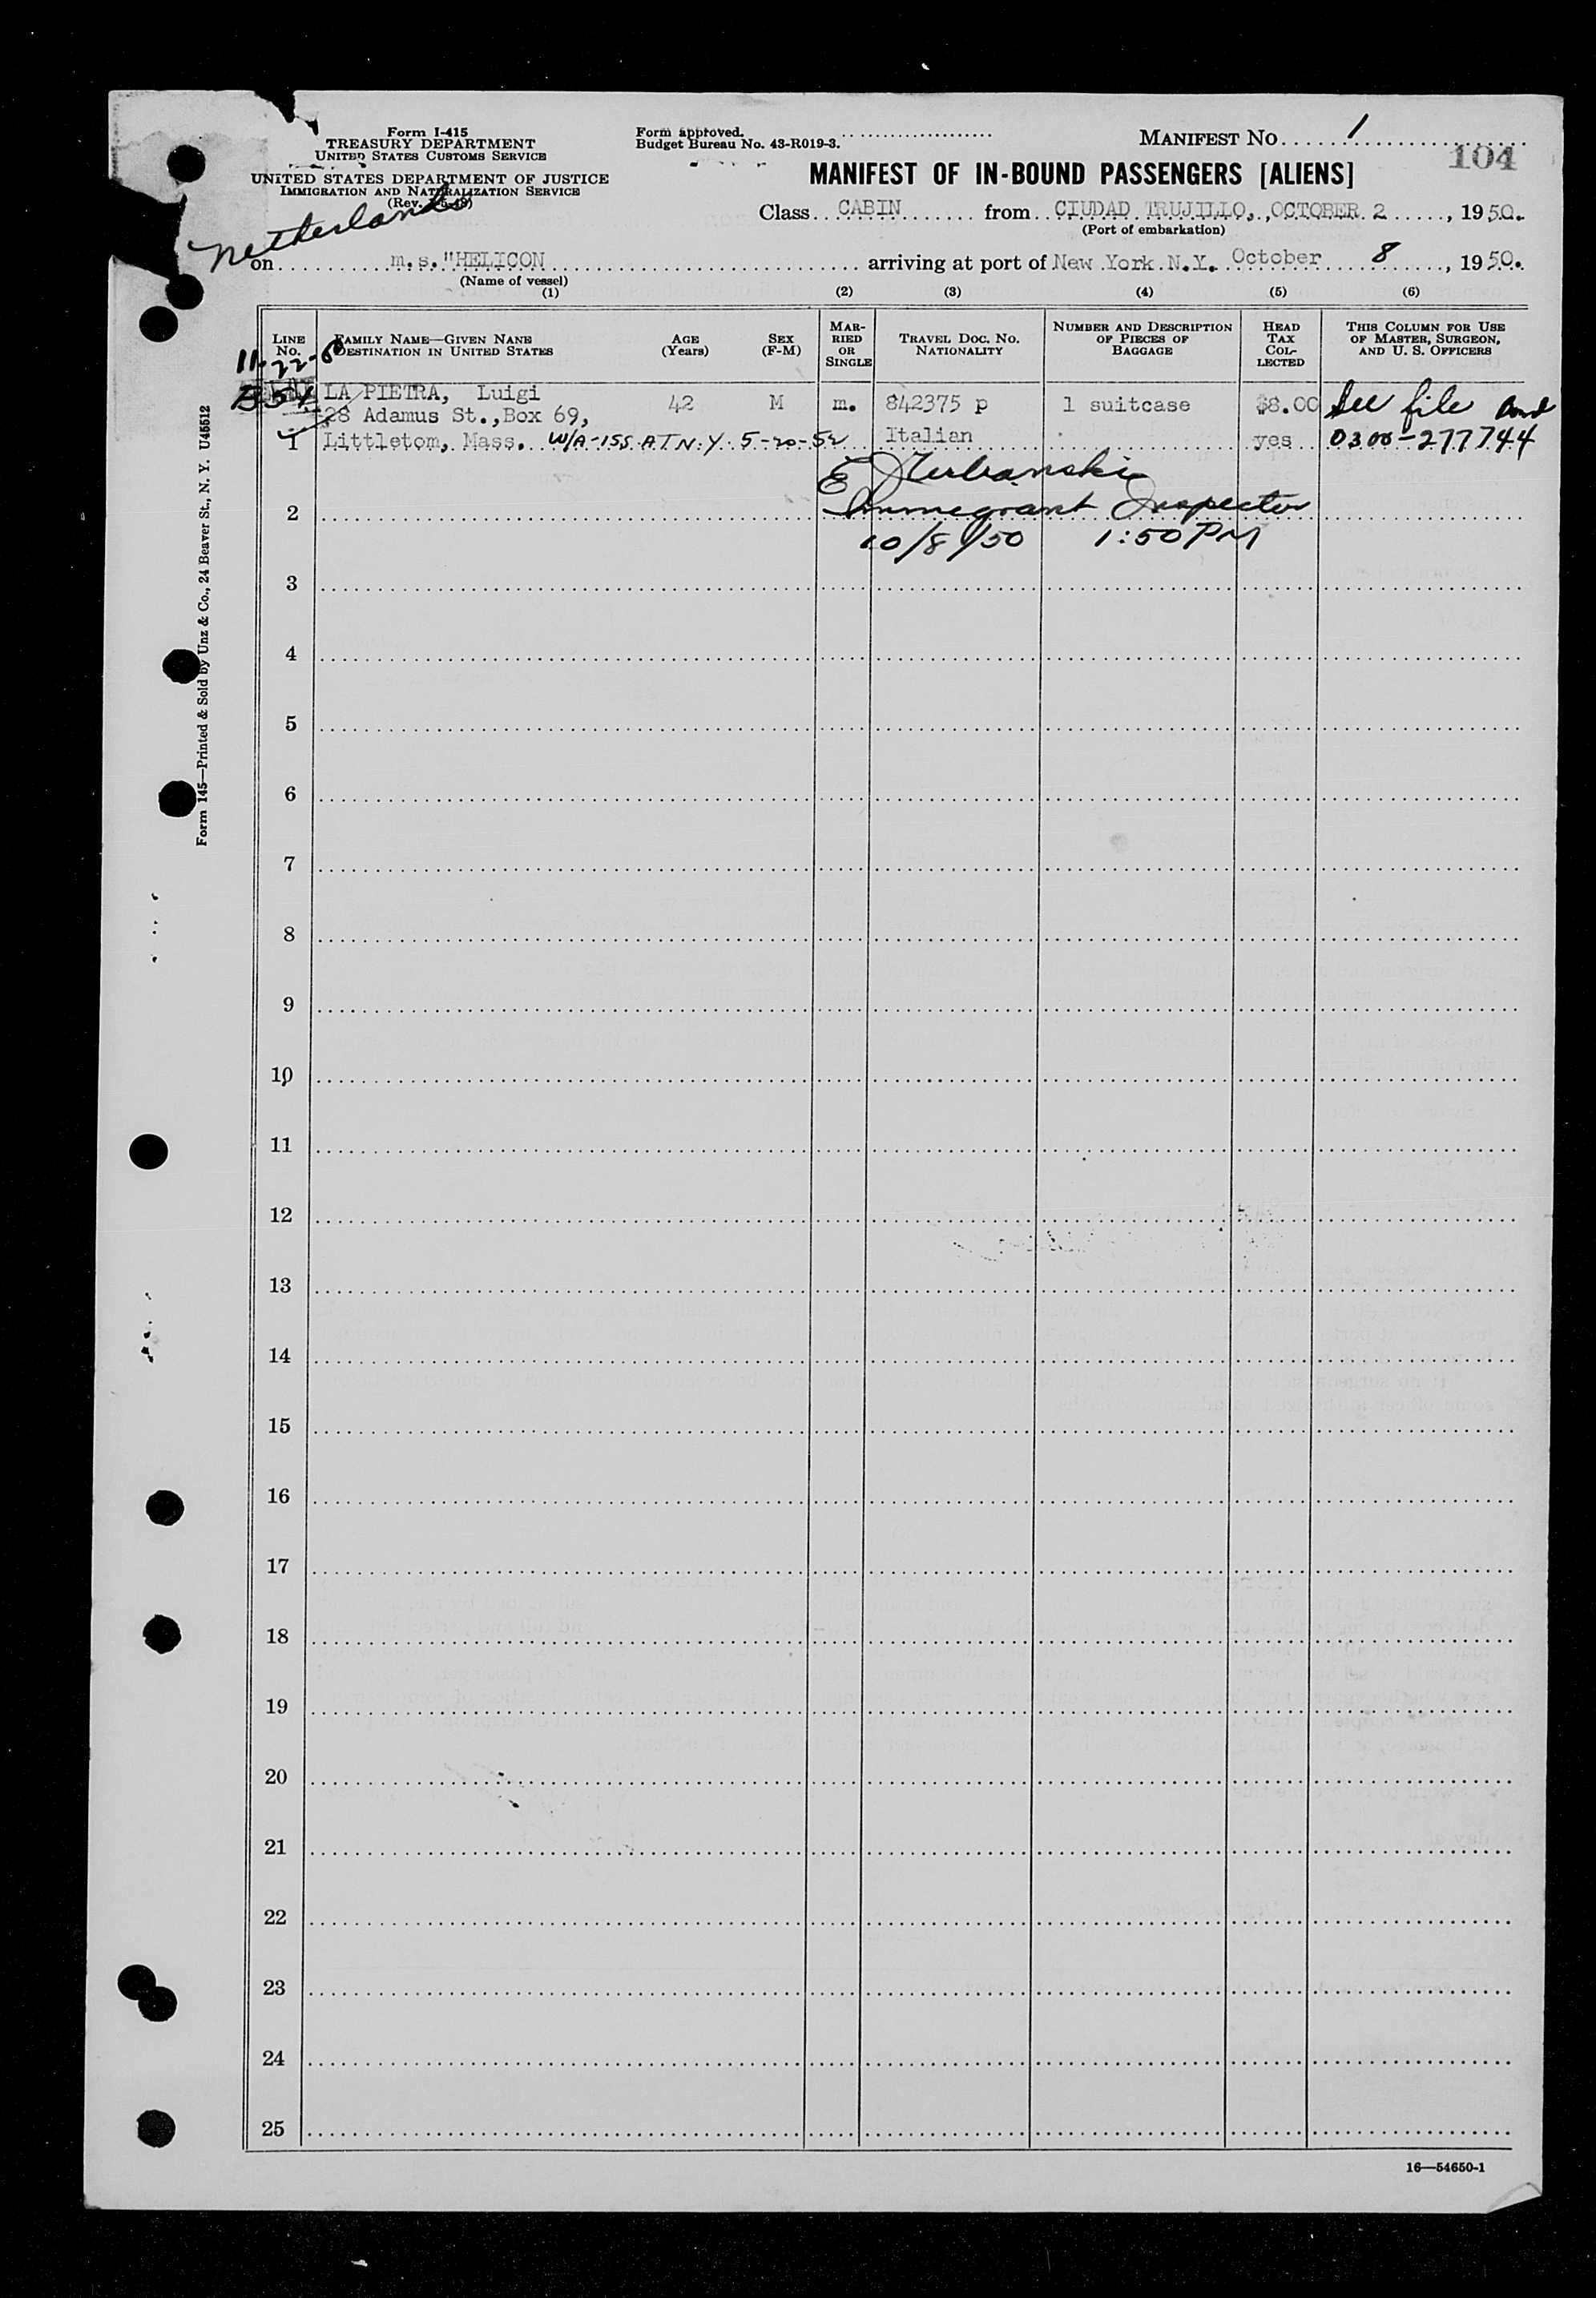 Form I-415
TREASURY DEPARTMENT
UNITED STATES CUSTOMS SERVICE
UNITED STATES DEPARTMENT OF JUSTICE
IMMIGRATION AND NATURALIZATION SERVICE
(Rev.
Form approved.
Budget Bureau No. 43-R019-3.
MANIFEST NO. 1
104
MANIFEST OF IN-BOUND PASSENGERS [ALIENS]
Class CABIN from CIUDAD TRUJILLO, OCTOBER 2, 1950.
(Port of embarkation)
Netherlands
on m.s."HELICON arriving at port of New York N.Y. October 8, 1950.
(Name of vessel)
(1) (2) (3) (4) (5) (6)
LINE NO. FAMILY NAME—GIVEN NANE DESTINATION IN UNITED STATES AGE (Years) SEX (F-M) MARRIED OR SINGLE TRAVEL DOC. NO. NATIONALITY NUMBER AND DESCRIPTION OF PIECES OF BAGGAGE HEAD TAX COLLECTED THIS COLUMN FOR USE OF MASTER, SURGEON, AND U. S. OFFICERS
11-22-50
LA PIETRA, Luigi 42 M m. 842375 p 1 suitcase $8.00 See file and
28 Adamus St.,Box 69,
1 Littletom, Mass. W/A-155 AT N.Y. 5-20-52 Italian yes 0300-277744
2 Immigrant Inspector
10/8/50 1:50 PM
3
4
5
6
7
8
9
10
11
12
13
14
15
16
17
18
19
20
21
22
23
24
25
16—54650-1
Form 145—Printed & Sold by Unz & Co., 24 Beaver St., N. Y. U45512